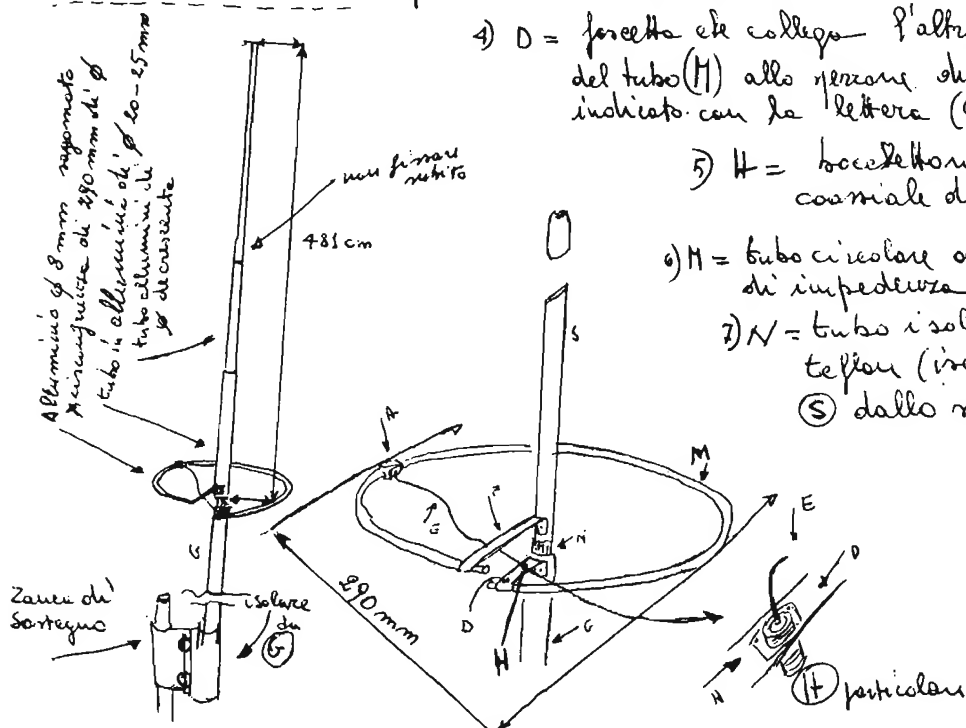 4) D = forcetta che collega l'altr
del tubo (M) allo
indicato con la lettera (
5) H =
coassiale d
6) M = tubo circolare a
di impedenza
7) N = tubo isol
teflon (is
(S) dallo
Alluminio ø 8 mm sagomato
a circonferenza di 290 mm di ø
tubo in alluminio di ø 20-25 mm
tubo alluminio di
ø decrescente
non fissare
subito
481 cm
A
M
S
E
F
N
D
H
G
290 mm
G
Zanca di
Sostegno
isolare
da
(G)
E
D
H
(H) particolare